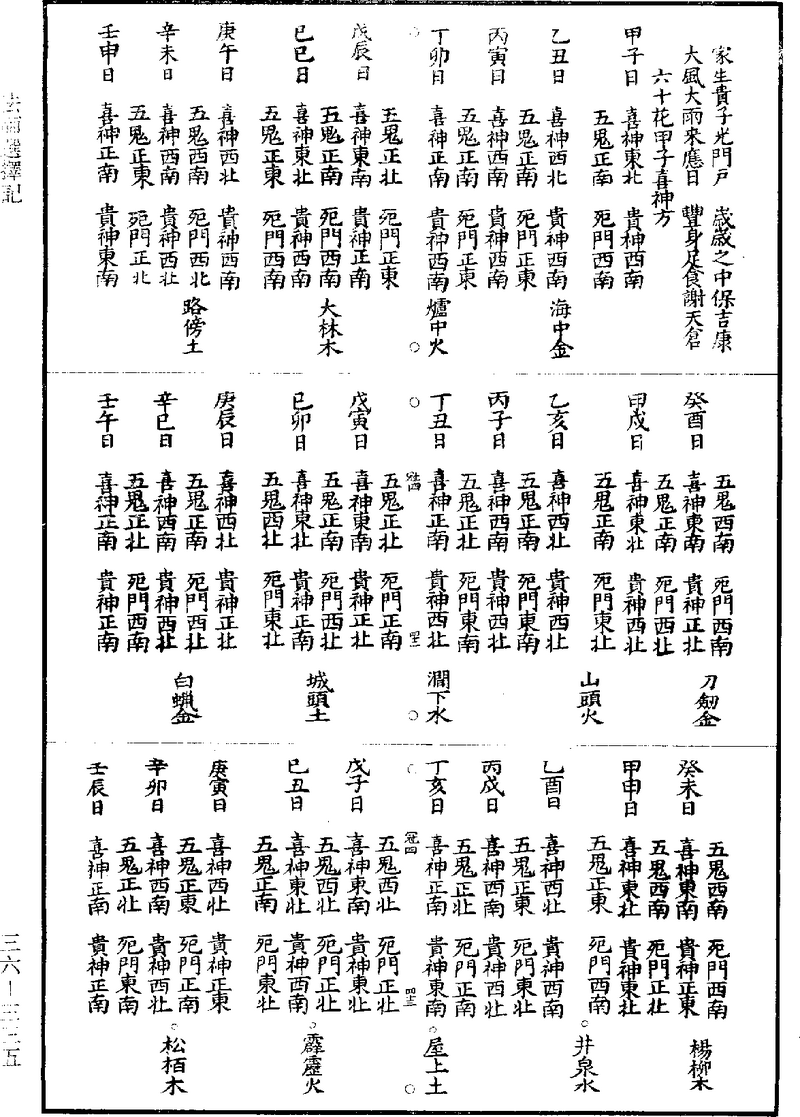 家生貴子光門戶 歲歲之中保吉康
大風大雨來應日 豐身足食謝天倉
六十花甲子喜神方
甲子日 喜神東北 貴神西南
五鬼正南 死門西南
乙丑日 喜神西北 貴神西南 海中金
五鬼正東 死門正東
丙寅日 喜神西南 貴神西南
五鬼正南 死門正東
丁卯日 喜神正南 貴神西南 爐中火
五鬼正北 死門正東
戊辰日 喜神東南 貴神正南
五鬼正南 死門西南 大林木
己巳日 喜神東北 貴神西南
五鬼正東 死門西南
庚午日 喜神西北 貴神西南
五鬼西南 死門西北 路傍土
辛未日 喜神西南 貴神西北
五鬼正東 死門正北
壬申日 喜神正南 貴神東南
五鬼西南 死門西南 刀劒金
癸酉日 喜神東南 貴神正北
五鬼正南 死門西北
甲戌日 喜神東北 貴神西北
五鬼正南 死門東北 山頭火
乙亥日 喜神西北 貴神西北
五鬼正南 死門東南
丙子日 喜神西南 貴神西北
五鬼正北 死門東南
丁丑日 喜神正南 貴神西北 澗下水
卷四 四二
五鬼正北 死門正南
戊寅日 喜神東南 貴神正北
五鬼正南 死門西北 城頭土
己卯日 喜神東北 貴神正南
五鬼西北 死門東北
庚辰日 喜神西北 貴神正北
五鬼正南 死門西北 白蠟金
辛巳日 喜神西南 貴神西北
五鬼正北 死門西南
壬午日 喜神正南 貴神正南
五鬼西南 死門西南 楊柳木
癸未日 喜神東南 貴神正東
五鬼西南 死門正北
甲申日 喜神東北 貴神東北
五鬼正東 死門西南 井泉水
乙酉日 喜神西北 貴神西南
五鬼正東 死門東北
丙戌日 喜神西南 貴神西北
五鬼正北 死門正南
丁亥日 喜神正南 貴神東北 屋上土
卷四 四三
五鬼西北 死門正北
戊子日 喜神東南 貴神東北
五鬼西北 死門正北
己丑日 喜神東北 貴神西南 霹靂火
五鬼正南 死門東北
庚寅日 喜神西北 貴神正東
五鬼正東 死門正南
辛卯日 喜神西南 貴神西北 松栢木
五鬼正北 死門東南
壬辰日 喜神正南 貴神正南
法師選擇記 三六—三三五